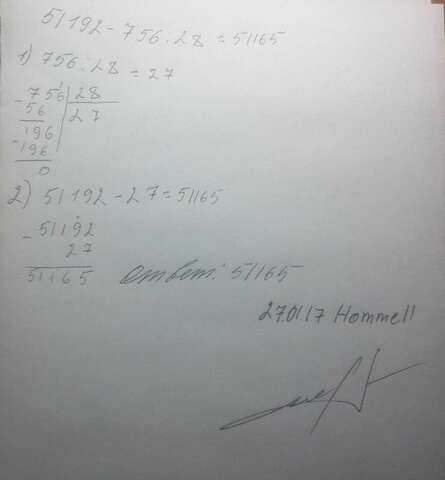 51192-756:28=51165
1) 756:28=27
-756|28
56 27
196
-196
0
2) 51192-27=51165
-51192
27
51165 ответ: 51165
27.01.17 Hommell